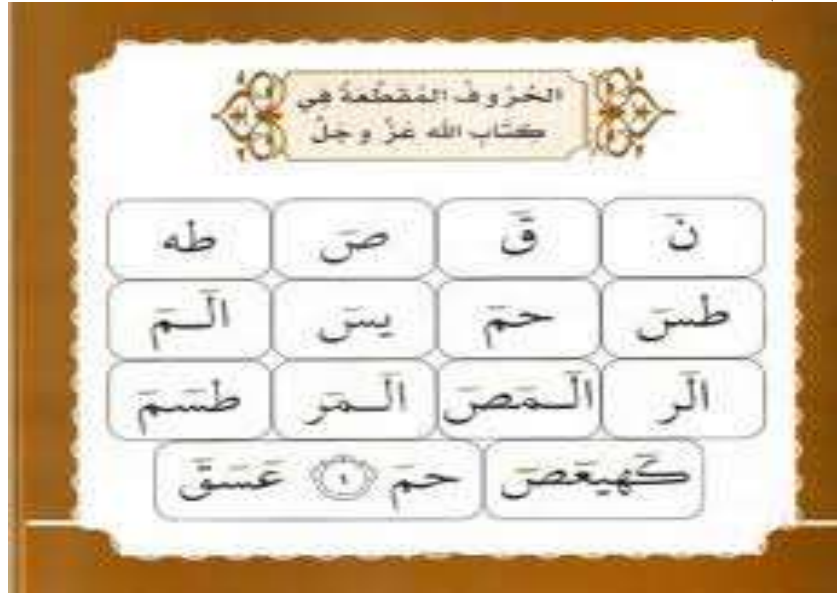 الحُرُوفُ المُقَطَّعَةُ فِي
كِتَابِ اللهِ عَزَّ وَجَلَّ
نَ قَ صَ طه
طسَ حمَ يسَ الَـمَ
الَر الَـمَصَ الَـمَر طسَمَ
كَهيعَصَ حمَ ١ عَسَقَ